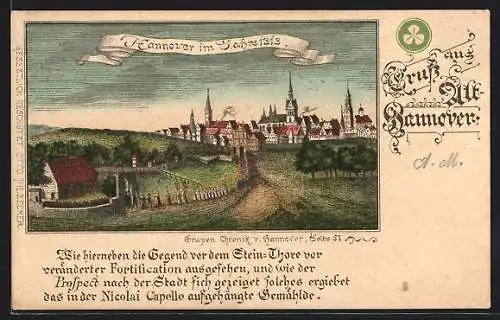 Hannover im Jahre 1313.
Gruß aus
Alt-
Hannover.
A. M.
GESETZLICH GESCHÜTZT. OTTO PILZECKER.
Grupen Chronik v. Hannover, Seite 51
Wie hierneben die Gegend vor dem Stein-Thore vor
veränderter Fortification ausgesehen, und wie der
Prospect nach der Stadt sich gezeiget solches ergiebet
das in der Nicolai Capelle aufgehängte Gemählde.